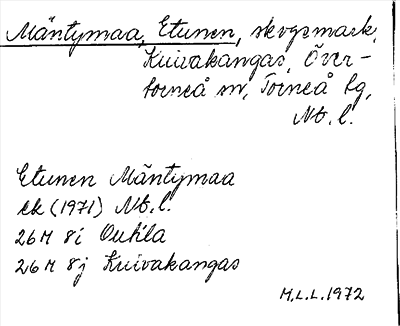 Mäntymaa, Etunen, skogsmark,
Kuivakangas, Över-
torneå sn, Torneå tg,
Nb. l.
Etunen Mäntymaa
ek (1971) Nb. l.
26M 8i Outila
26M 8j Kuivakangas
M.L.L. 1972